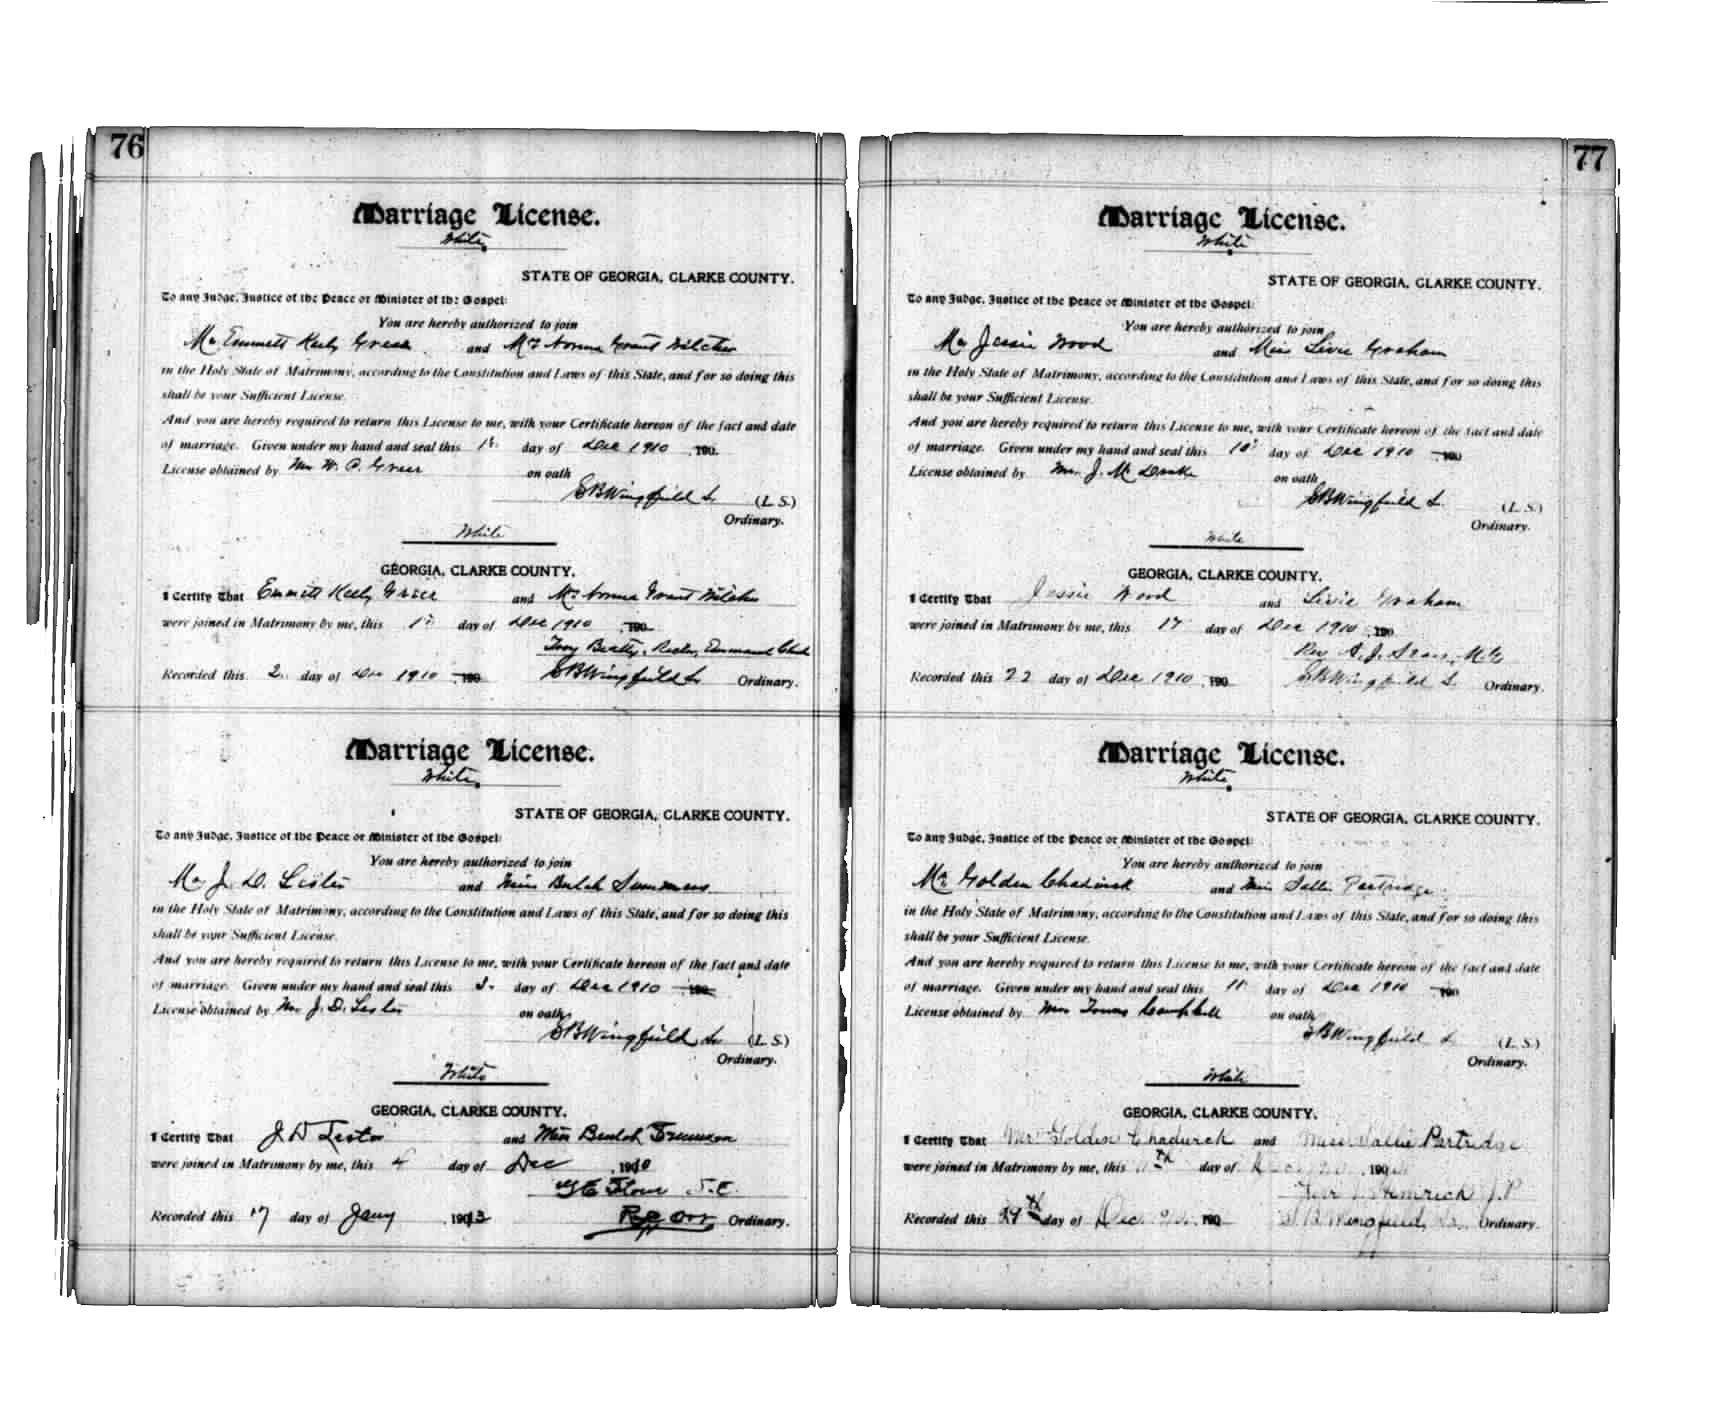 76
Marriage License.
White
STATE OF GEORGIA, CLARKE COUNTY.
To any Judge, Justice of the Peace or Minister of the Gospel:
You are hereby authorized to join
Mr Emmett Greer and Grant
in the Holy State of Matrimony, according to the Constitution and Laws of this State, and for so doing this
shall be your Sufficient License.
And you are hereby required to return this License to me, with your Certificate hereon of the fact and date
of marriage. Given under my hand and seal this day of Dec 1910 , 190
License obtained by Mr W. P. Greer on oath
Wingfield (L. S.)
Ordinary.
White
GEORGIA, CLARKE COUNTY.
I Certify That Emmett Greer and Grant
were joined in Matrimony by me, this day of Dec 1910 , 190
Beatty, Rector,
Recorded this 2 day of Dec 1910 , 190 Wingfield Ordinary.
Marriage License.
White
STATE OF GEORGIA, CLARKE COUNTY.
To any Judge, Justice of the Peace or Minister of the Gospel:
You are hereby authorized to join
Mr J. D. Lester and Miss
in the Holy State of Matrimony, according to the Constitution and Laws of this State, and for so doing this
shall be your Sufficient License.
And you are hereby required to return this License to me, with your Certificate hereon of the fact and date
of marriage. Given under my hand and seal this day of Dec 1910
License obtained by Mr J. D. Lester on oath
Wingfield (L. S.)
Ordinary.
White
GEORGIA, CLARKE COUNTY.
I Certify That J D Lester and Miss Beulah
were joined in Matrimony by me, this 4 day of Dec , 1910
Recorded this 17 day of Jany , 1913 Orr Ordinary.
77
Marriage License.
White
STATE OF GEORGIA, CLARKE COUNTY.
To any Judge, Justice of the Peace or Minister of the Gospel:
You are hereby authorized to join
Mr Jessie Wood and Miss Livie Graham
in the Holy State of Matrimony, according to the Constitution and Laws of this State, and for so doing this
shall be your Sufficient License.
And you are hereby required to return this License to me, with your Certificate hereon of the fact and date
of marriage. Given under my hand and seal this 10 day of Dec 1910 , 190
License obtained by Mr. J. M on oath
Wingfield (L. S.)
Ordinary.
White
GEORGIA, CLARKE COUNTY.
I Certify That Jessie Wood and Livie Graham
were joined in Matrimony by me, this 17 day of Dec 1910 , 190
Rev
Recorded this 22 day of Dec 1910 , 190 Wingfield Ordinary.
Marriage License.
White
STATE OF GEORGIA, CLARKE COUNTY.
To any Judge, Justice of the Peace or Minister of the Gospel:
You are hereby authorized to join
Mr Golden Chadwick and Miss Sallie Partridge
in the Holy State of Matrimony, according to the Constitution and Laws of this State, and for so doing this
shall be your Sufficient License.
And you are hereby required to return this License to me, with your Certificate hereon of the fact and date
of marriage. Given under my hand and seal this 11 day of Dec 1910 , 190
License obtained by Campbell on oath
Wingfield (L. S.)
Ordinary.
White
GEORGIA, CLARKE COUNTY.
I Certify That Mr Golden Chadwick and Miss Sallie Partridge
were joined in Matrimony by me, this 11th day of , 190
J.P.
Recorded this 29th day of Dec. , 190 Wingfield, Ordinary.